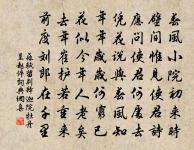 春風小院初來時
壁間惟見使君詩
應問使君何處去
憑花說與春風知
年年歲歲何窮已
花似今年人老矣
去年崔護若重來
前度劉郎在千里
蘇軾留別釋迦院牡丹
呈趙倅詞典網